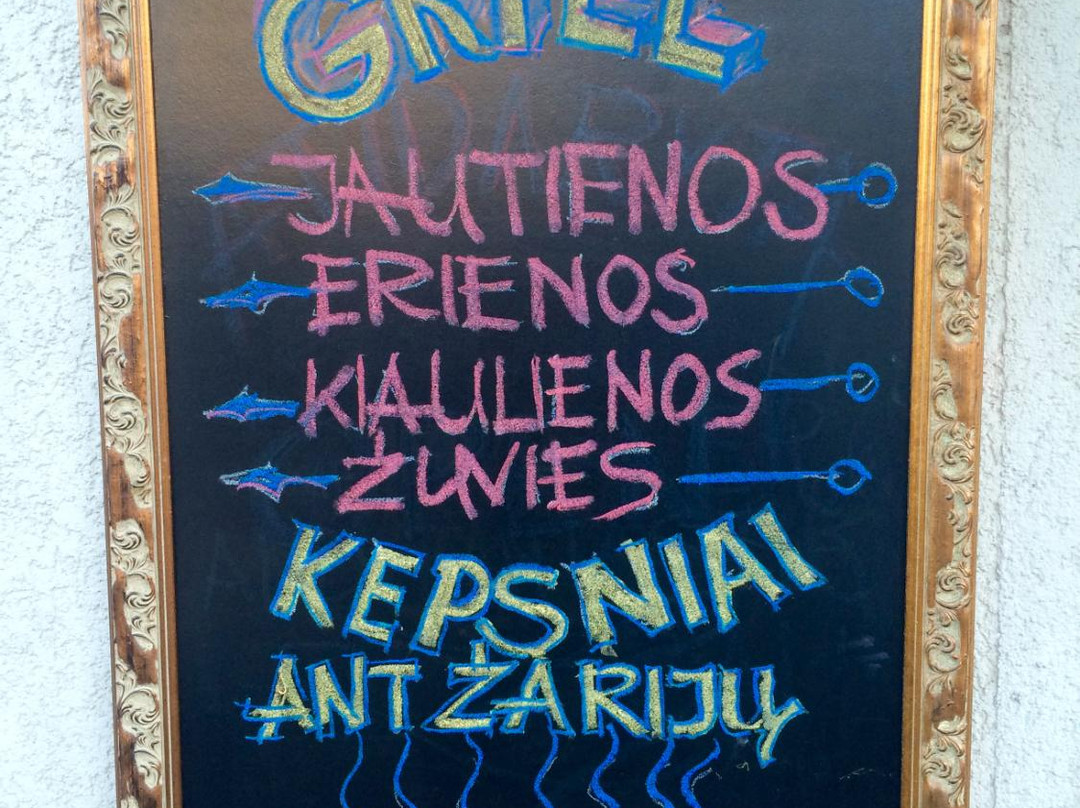 GRILL
JAUTIENOS
ERIENOS
KIAULIENOS
ŽUVIES
KEPSNIAI
ANT ŽARIJŲ